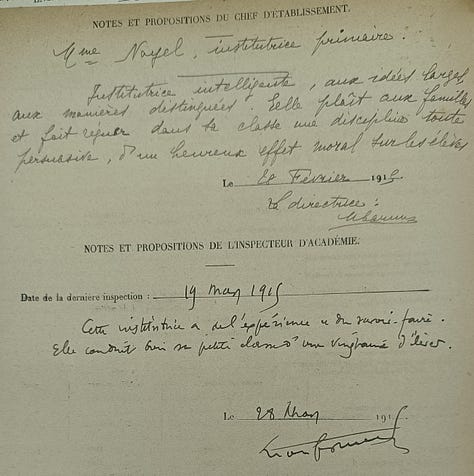 NOTES ET PROPOSITIONS DU CHEF D'ÉTABLISSEMENT.
Mme Nayel, institutrice primaire.
Institutrice intelligente, aux idées larges,
aux manières distinguées. Elle plaît aux familles
et fait régner dans sa classe une discipline toute
persuasive, d'un heureux effet moral sur les élèves
Le 28 Février 1915
La directrice :
NOTES ET PROPOSITIONS DE L'INSPECTEUR D'ACADÉMIE.
Date de la dernière inspection : 19 mars 1915
Cette institutrice a de l'expérience et du savoir-faire.
Elle conduit bien sa petite classe d'une vingtaine d'élèves.
Le 28 Mars 1915